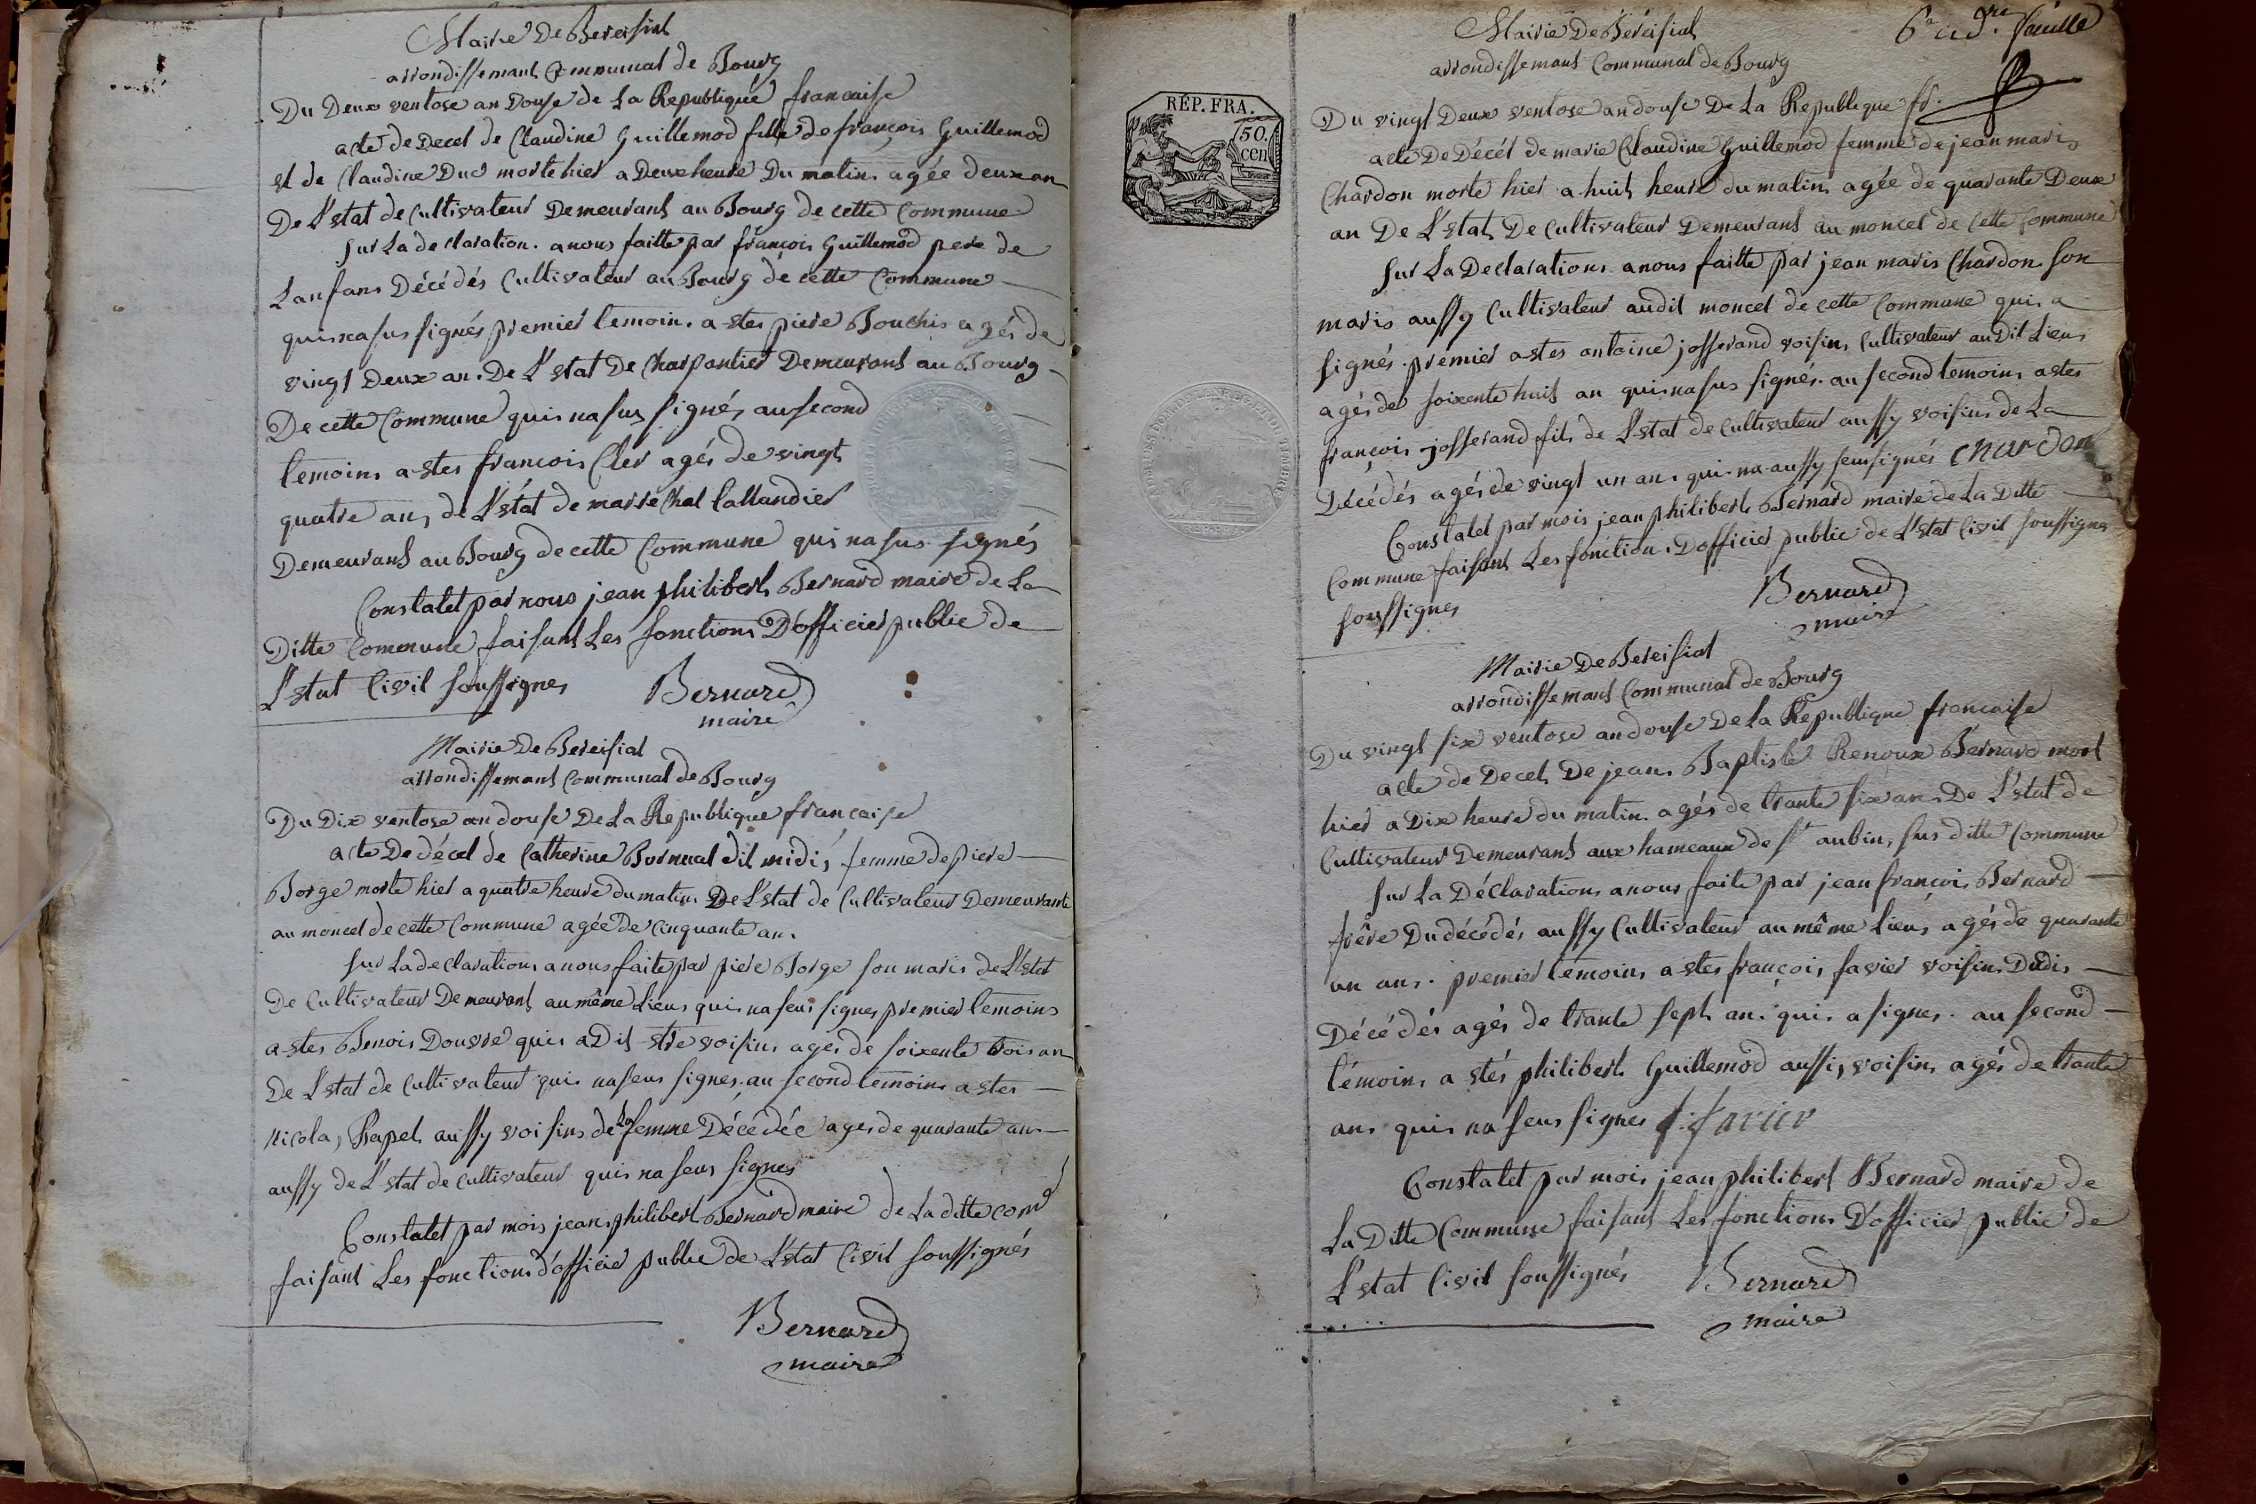 Mairie De Bereisiat
arrondissemant Communal de Bourg
Du Deux ventose an Douse de La Republique francaise
acte de Decet de Claudine Guillemod fille de françois Guillemod
et de Claudine Duc morte hier a Deux heure Du matin agée deux an
De L'stat de Cultivateur Demeurant au Bourg de cette Commune
sur La declaration a nous faitte par françois Guillemod pere de
Lanfans Décédés Cultivateur au Bourg de cette Commune
qui na sus signés premier temoin a stes piere Bouchis agés de
vingt Deux an De L'stat De Charpantier Demeurant au Bourg
De cette Commune qui na sus signés au second
temoins a stes francois Cler agés de vingt
quatre ans de L'stat de maréchal tallandier
Demeurant au Bourg de cette Commune qui na sus signés
Constatet par nous jean philibert Bernard maire de La
Ditte Commune faisant Les fonctions D'officier public de
L'stat Civil soussignes Bernard
maire
Mairie De Bereisiat
arrondissemant Communal de Bourg
Du Dix ventose an douse De La Republique française
acte De décet de Catherine Burnual dit midi, femme de piere
Borge morte hier a quatre heure du matin De L'stat de Cultivateur Demeurante
au moncel de cette Commune agée De Cinquante an.
sur La declaration a nous faite par piere Borge son maris de L'stat
De Cultivateur Demeurant au même Lieus qui na seus signes premier temoins
a stes Benois Douvre qui a Dit stre voisins ages de soixente trois an
De L'stat de Cultivateur qui na seus signes au second temoins a stes
nicola, Papet aussy voisins de La femme Décédée ages de quarante ans
aussy de L'stat de cultivateur qui na seus signes
Constatet par mois jean philibert Bernard maire de La ditte comm
faisant Les fonctions d'officié publié de L'stat Civil soussignés
Bernard
maire
6e a dre feuille
Mairie De Bereisiat
arrondissemant Communal de Bourg
RÉP. FRA.
50.
cen
Du vingt Deux ventose an douse De La Republique fr.
acte De Décét de marie Claudine Guillemod femme de jean maris
Chardon morte hier a huit heure du matin agée de quarante Deux
an De L'stat De Cultivateur Demeurant au moncel de cette Commune
sur La Declarations a nous faitte par jean maris Chardon son
maris aussy Cultivateur audit moncel de cette Commune qui a
signés premier a stes antoine josserand voisins Cultivateur au Dit Lieus
agés de soixente huit an qui na sus signés au second temoins a stes
françois josserand fils de L'stat de Cultivateur aussy voisins de La
Décédés agés de vingt un ans qui na aussy seus signés chardon
Constatet par mois jean philibert Bernard maire de La Ditte
Commune faisant Les fonctions D'officier public de L'stat Civil soussignes
soussignes Bernard
maire
Mairie De Bereisiat
arrondissemant Communal de Bourg
Du vingt six ventose an douse De La Republique francaise
acte de Decet De jean Baptiste Renoux Bernard mort
hier a Dix heure du matin agés de trante six ans De L'stat de
Cultivateur Demeurant aux hameaux de st aubin, sus ditte Commune
sur La Déclarations a nous faite par jean françois Bernard
frère Du décédés aussy Cultivateur au même Lieus agés de quarante
un ans. premier temoins a stes françois favier voisins Dudis
Décédés agés de trante sept an qui a signes. au second
témoins a stés philibert Guillemod aussi, voisins agés de trante
ans qui na seus signes f. favier
Constatet par mois jean philibert Bernard maire de
La Ditte Commune faisant Les fonctions D'officier public de
L'stat Civil soussignés Bernard
maire